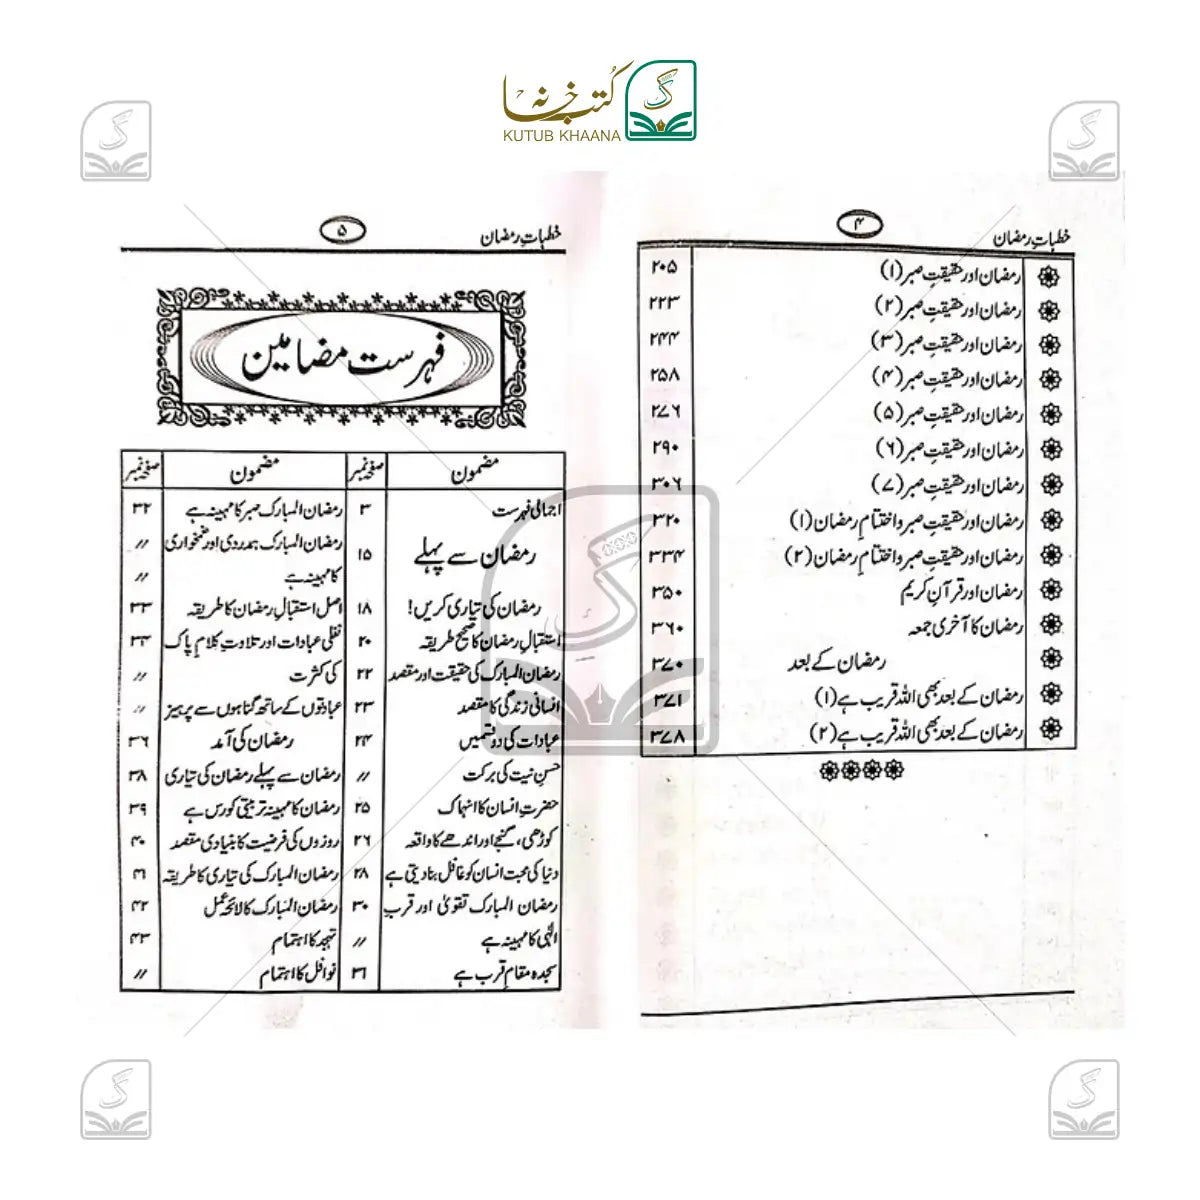 کتب خانہ
KUTUB KHAANA
خطباتِ رمضان ۴
رمضان اور حقیقتِ صبر (۱) ۲۰۵
رمضان اور حقیقتِ صبر (۲) ۲۲۳
رمضان اور حقیقتِ صبر (۳) ۲۴۴
رمضان اور حقیقتِ صبر (۴) ۲۵۸
رمضان اور حقیقتِ صبر (۵) ۲۷۶
رمضان اور حقیقتِ صبر (۶) ۲۹۰
رمضان اور حقیقتِ صبر (۷) ۳۰۶
رمضان اور حقیقتِ صبر و اختتامِ رمضان (۱) ۳۲۰
رمضان اور حقیقتِ صبر و اختتامِ رمضان (۲) ۳۳۴
رمضان اور قرآنِ کریم ۳۵۰
رمضان کا آخری جمعہ ۳۶۰
رمضان کے بعد ۳۷۰
رمضان کے بعد بھی اللہ قریب ہے (۱) ۳۷۱
رمضان کے بعد بھی اللہ قریب ہے (۲) ۳۷۸
خطباتِ رمضان ۵
فہرست مضامین
مضمون صفحہ نمبر
اجمالی فہرست ۳
رمضان سے پہلے ۱۵
رمضان کی تیاری کریں! ۱۸
استقبالِ رمضان کا صحیح طریقہ ۲۰
رمضان المبارک کی حقیقت اور مقصد ۲۲
انسانی زندگی کا مقصد ۲۳
عبادات کی دو قسمیں ۲۴
حسنِ نیت کی برکت //
حضرتِ انسان کا انہاک ۲۵
کوڑھی، گنجے اور اندھے کا واقعہ ۲۶
دنیا کی محبت انسان کو غافل بنا دیتی ہے ۲۸
رمضان المبارک تقویٰ اور قربِ ۳۰
الٰہی کا مہینہ ہے //
سجدہ مقامِ قرب ہے ۳۱
مضمون صفحہ نمبر
رمضان المبارک صبر کا مہینہ ہے ۳۲
رمضان المبارک ہمدردی اور غمخواری //
کا مہینہ ہے //
اصل استقبالِ رمضان کا طریقہ ۳۳
نفلی عبادات اور تلاوتِ کلامِ پاک ۳۴
کی کثرت //
عبادتوں کے ساتھ گناہوں سے پرہیز //
رمضان کی آمد ۳۶
رمضان سے پہلے رمضان کی تیاری ۳۸
رمضان کا مہینہ تربیتی کورس ہے ۳۹
روزوں کی فرضیت کا بنیادی مقصد ۴۰
رمضان المبارک کی تیاری کا طریقہ ۴۱
رمضان المبارک کا لائحہ عمل ۴۲
تہجد کا اہتمام ۴۳
نوافل کا اہتمام //